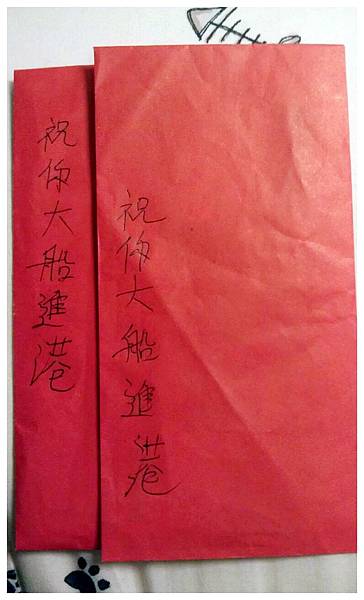 祝你大船進港
祝你大船進港